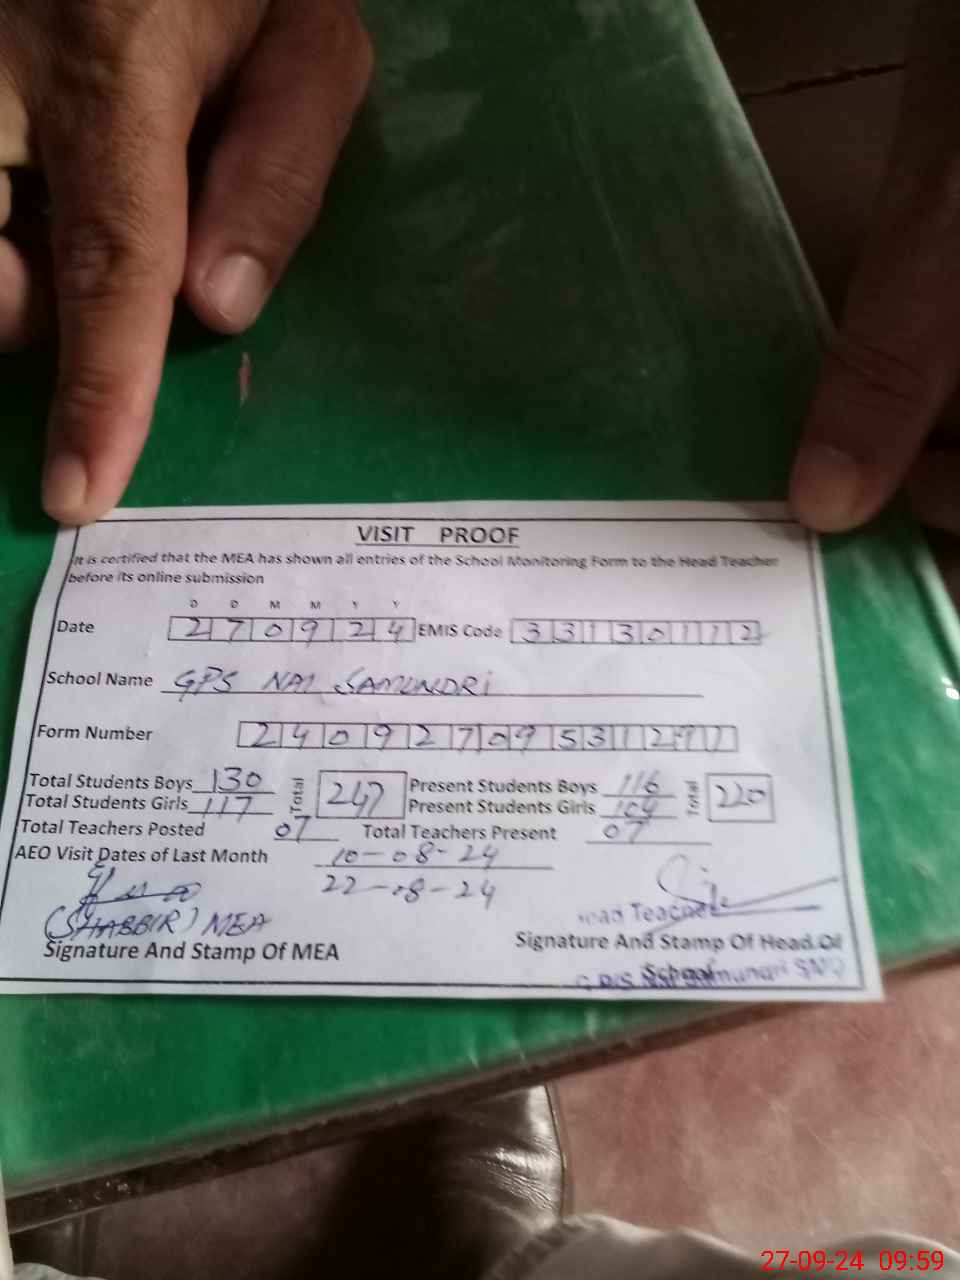 VISIT PROOF
It is certified that the MEA has shown all entries of the School Monitoring Form to the Head Teacher
before its online submission
D D M M Y Y
Date 270924 EMIS Code 33130112
School Name GPS NAI SAMUNDRI
Form Number
Total Students Boys 130 Total 247 Present Students Boys 116 Total 220
Total Students Girls 117 Present Students Girls 104
Total Teachers Posted 07 Total Teachers Present 07
AEO Visit Dates of Last Month 10-08-24
22-08-24
(SHABBIR) MEA Head Teacher
Signature And Stamp Of MEA Signature And Stamp Of Head Of
School
Samundri
27-09-24 09:59